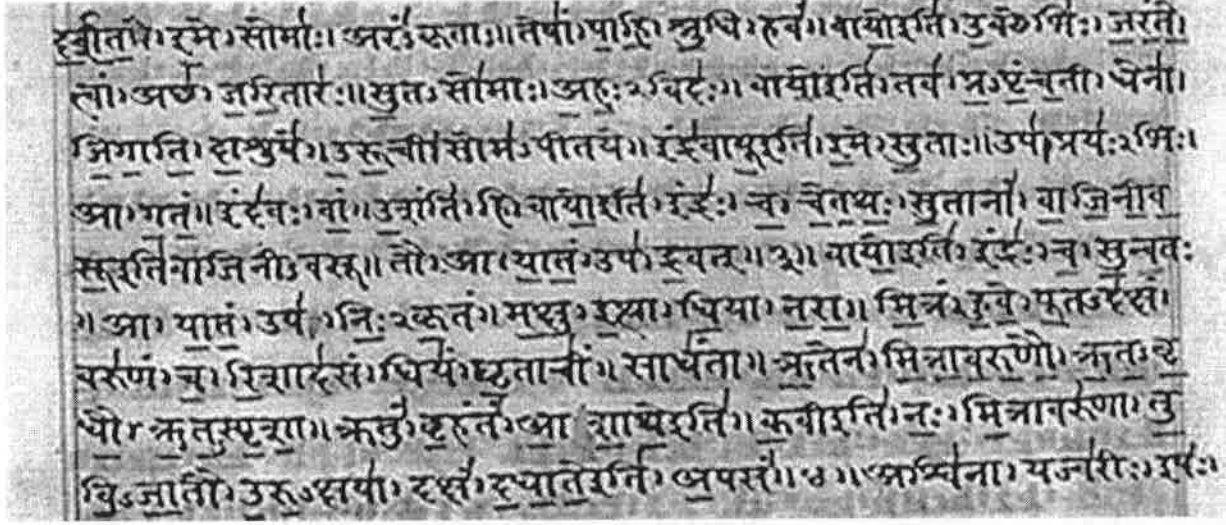 दर्शत। इमे। सोमाः। अरंऽकृताः॥ तेषां। पाहि। श्रुधि। हवं॥ वायो इति। उक्थेभिः। जरंते।
त्वां। अच्छ। जरितारः॥ सुतऽसोमाः। अहःऽविदः॥ वायो इति। तव। प्रऽपृंचती। धेना।
जिगाति। दाशुषे॥ उरूची। सोमऽपीतये॥ इंद्रवायू इति। इमे। सुताः॥ उप। प्रयःऽभिः।
आ। गतं॥ इंदवः। वां॥ उशंति। हि। वायो इति। इंद्रः। च। चेतथः। सुतानां। वाजिनीव
सू इति वाजिनीऽवसू॥ तौ। आ। यातं। उप। द्रवत्॥ ३॥ वायो इति। इंद्रः। च। सुन्वतः
॥ आ। यातं। उप। निःऽकृतं॥ मक्षु। इत्था। धिया। नरा॥ मित्रं। हुवे। पूतऽदक्षं।
वरुणं। च। रिशादसं। धियं। घृताचीं॥ साधंता॥ ऋतेन। मित्रावरुणौ। ऋतऽवृ
धौ। ऋतऽस्पृशा॥ क्रतुं। बृहंतं। आशाथे इति॥ कवी इति। नः। मित्रावरुणा। तु
विऽजातौ। उरुऽक्षया। दक्षं। दधाते इति। अपसं॥ ४॥ अश्विना। यज्वरीः। इषः।